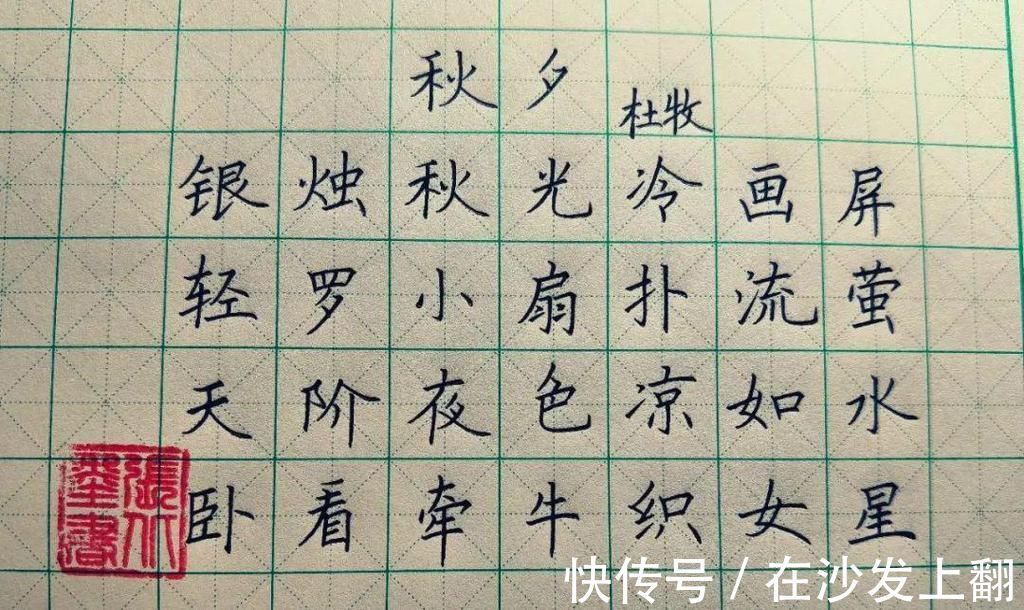 秋夕
杜牧
银烛秋光冷画屏
轻罗小扇扑流萤
天阶夜色凉如水
卧看牵牛织女星
快传号 / 在沙发上翻